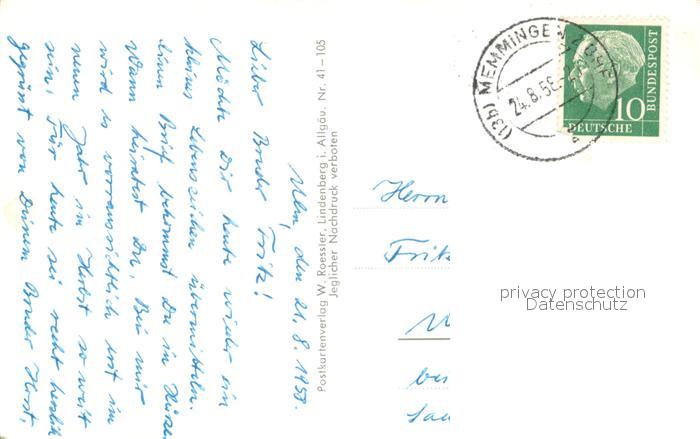 Ulm, den 21.8.1958.
Lieber Bruder Fritz!
Möchte Dir heute wieder ein
kleines Lebenszeichen übermitteln.
Einen Brief bekommst Du in Kürze.
Wann heiratest Du. Bei mir
wird es voraussichtlich erst im
neuen Jahr im Herbst so weit
sein! Für heute sei recht herzlich
gegrüsst von Deinem Bruder Horst.
Postkartenverlag W. Roessler, Lindenberg i. Allgäu. Nr. 41-105
Jeglicher Nachdruck verboten
(13b) MEMMINGEN
24.8.58
10
DEUTSCHE
BUNDESPOST
Herrn
Fritz
bei
privacy protection
Datenschutz